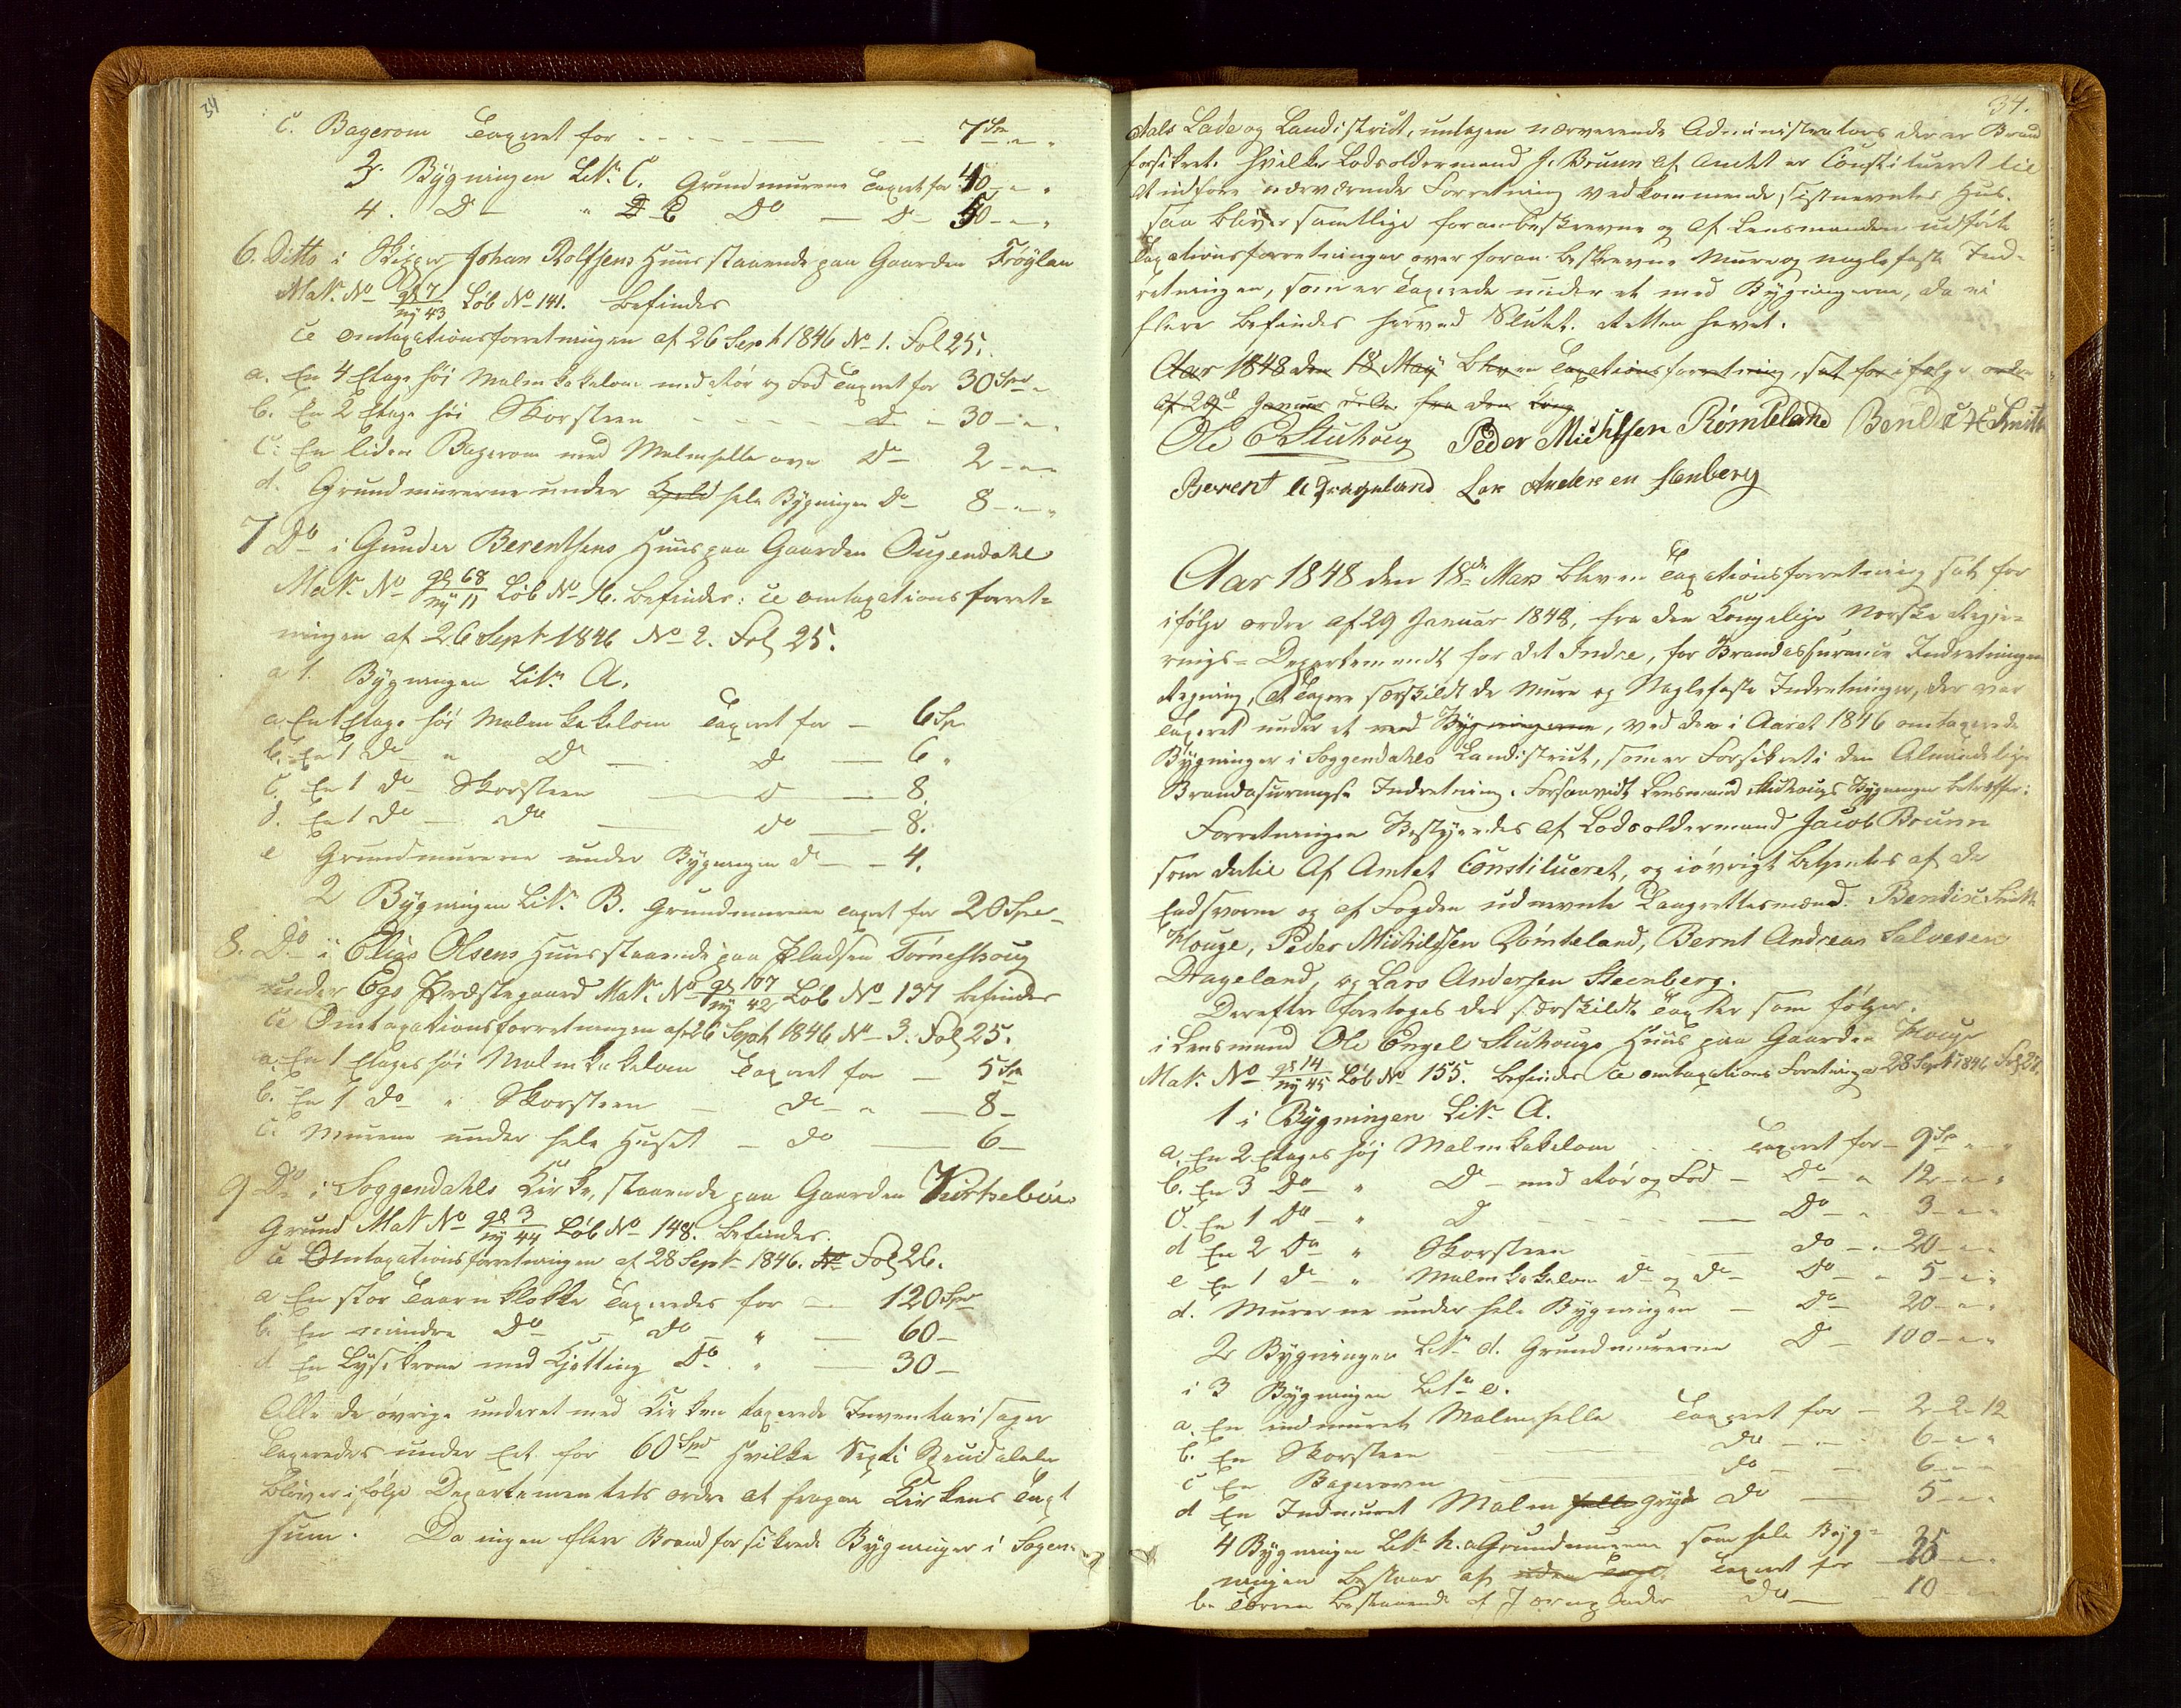 34
C. Bagerovn Taxeret for - - - - — - — 7 Sp - "
3. Bygningen Litr. C. Grundmurene Taxeret for 40 - " "
4. Do - " E Do — Do 50 - " "
6. Ditto i Skipper Johan Rolfsens Huus staaende paa Gaarden Frøylan
Matr. No gl 7 / ny 43 Løb No 141. befindes
Ce omtaxationsforretningen af 26 Sept 1846 No 1. Fol 25.
a. En 4 Etage høi Malmkakelovn med Rør og Fod Taxeret for 30 Spd "
b. En 2 Etage høi Skorsteen - - - - Do - 30 - "
c. En liden Bagerovn med Malmhelle ovn Do 2 - " "
d. Grundmurerne under hele Bygningen Do 8 - " "
7 Do i Gunder Berentsens Huus paa Gaarden Øugendahl
Matr. No gl 68 / ny 11 Løb No 16. befindes: Ce omtaxationsforret-
ningen af 26 Sept 1846 No 2. Fol 25.
a 1. Bygningen Litr. A.
a. En 1 Etage høi Malmkakelovn Taxeret for — 6 Sp
b. En 1 Do " Do — Do — 6 "
c. En 1 do Skorsteen — Do — 8
d. En 1 do — Do — do — 8.
e Grundmurerne under Bygningen do — 4.
2 Bygningen Litr. B. Grundmurerne taxeret for 20 Spd
8. Do i Elias Olsens Huus staaende paa Pladsen Tørneshoug
under Egs Præstegaard Matr. No gl 107 / ny 42 Løb No 137 befindes
Ce Omtaxationsforretningen af 26 Sept 1846 No 3. Fol 25.
a. En 1 Etages høi Malmkakelovn Taxeret for — 5 Spd
b. En 1 do " Skorsteen — do " — 8 -
c. Murene under hele Huset — do — 6 -
9 Do i Soggendahls Kirke, staaende paa Gaarden Kirkebøes
Grund Matr No gl 3 / ny 44 Løb No 148. befindes.
Ce Omtaxationsforretningen af 28 Sept 1846. No Fol 26.
a En stor Taarnklokke Taxeredes for — 120 Spd
b. En mindre Do — do " — 60 -
d En Lysekrone med Kjetting Do " — 30 -
Alle de øvrige underet med Kirken taxerede Inventarisager
taxeredes under Eet for 60 Spd hvilke Sexti Speciedaler
bliver ifølge Departementets ordre at fragaae Kirkens Taxt
sum. Da ingen flere Brandforsikrede Bygninger i Sogen-
34.
dals Lade og Landistrict, undtagen nærværende Administrators der er Brand
forsikret. hvilke Lodsoldermand J. Bruun af Amtet er Constitueret til
at udføre nærværende Forretning vedkommende, sistnevntes Hus.
saa bliver samtlige foranbeskrevne og af Lensmanden udførte
Taxationsforretninger over foran beskrevne Mure og naglefaste Ind-
retninger, som er Taxerede under et med Bygningerne, da ei
flere befindes herved Sluttet. Retten hevet.
Aar 1848 den 18 May blev en Taxationsforretning, sat for ifølge orden
af 29de Januar d.A. fra den Kong
Ole E Stuhoug Peder Michelsen Rømteland Bendix H Smith
Berent A Drageland Lars Andersen Stenberg
Aar 1848 den 18de Mars blev en Taxationsforretning sat for
ifølge ordre af 29 Januar 1848, fra den Kongelige Norske Regje-
rings-Departement for det Indre, for Brandassurance Indretningen
Regning, at Taxere særskildt de Mure og Naglefaste Indretninger, der var
Taxeret under et med Bygningerne, ved den i Aaret 1846 omtaxerede
Bygninger i Soggendahls Landistrict, som er Forsikret i den Almindelige
Brandasurangse Indretning. Forsaavidt Lensmand Stuhougs Bygninger betræffer:
Forretningen Bestyredes af Lodsoldermand Jacob Bruun
som dertil Af Amtet Constitueret, og iøvrigt betjentes af de
Eedsvorne og af Fogden udnevnte Laugrettesmænd. Bendix Smith
Houge, Peder Michelsen Rømteland, Bernt Andreas Salvesen
Drageland, og Lars Andersen Steenberg.
Derefter foretoges den særskildte Taxter som følger.
i Lensmand Ole Engel Stuhougs Huus paa Gaarden Houge
Matr. No gl 14 / ny 45 Løb No 155. befindes Ce omtaxations Forretning 28 Sept 1846 Fol 27.
1 i Bygningen Litr. A.
a. En 2 Etages høj Malmkakelovn - - Taxeret for — 9 Sp " "
b. En 3 Do " Do — med Rør og Fod — Do " 12 - " "
C. En 1 Do " Do - - - - — Do " 3 - " "
d En 2 Do " Skorsteen - — do — 20 - " "
e En 1 do " Malmkakelovn do og do — Do " 5 - " "
d. Murerne under hele Bygningen — Do — 20 - " "
2 Bygningen Litr d. Grundmurerne Do — 100 - " "
i 3 Bygningen Litr e.
a. En indmuret Malmhelle Taxeret for — 2 - 2 - 12
b. En Skorsteen — do — 6 - " "
c En Bagerovn — do — 6 - " "
d En Indmuret Malm helle gryde Do — 5 - " "
4 Bygningen Litr h. a Grundmurene som hele Byg-
ningen bestaar af Taxeret for 25 - " "
b. bestaaende af do — 10 - "